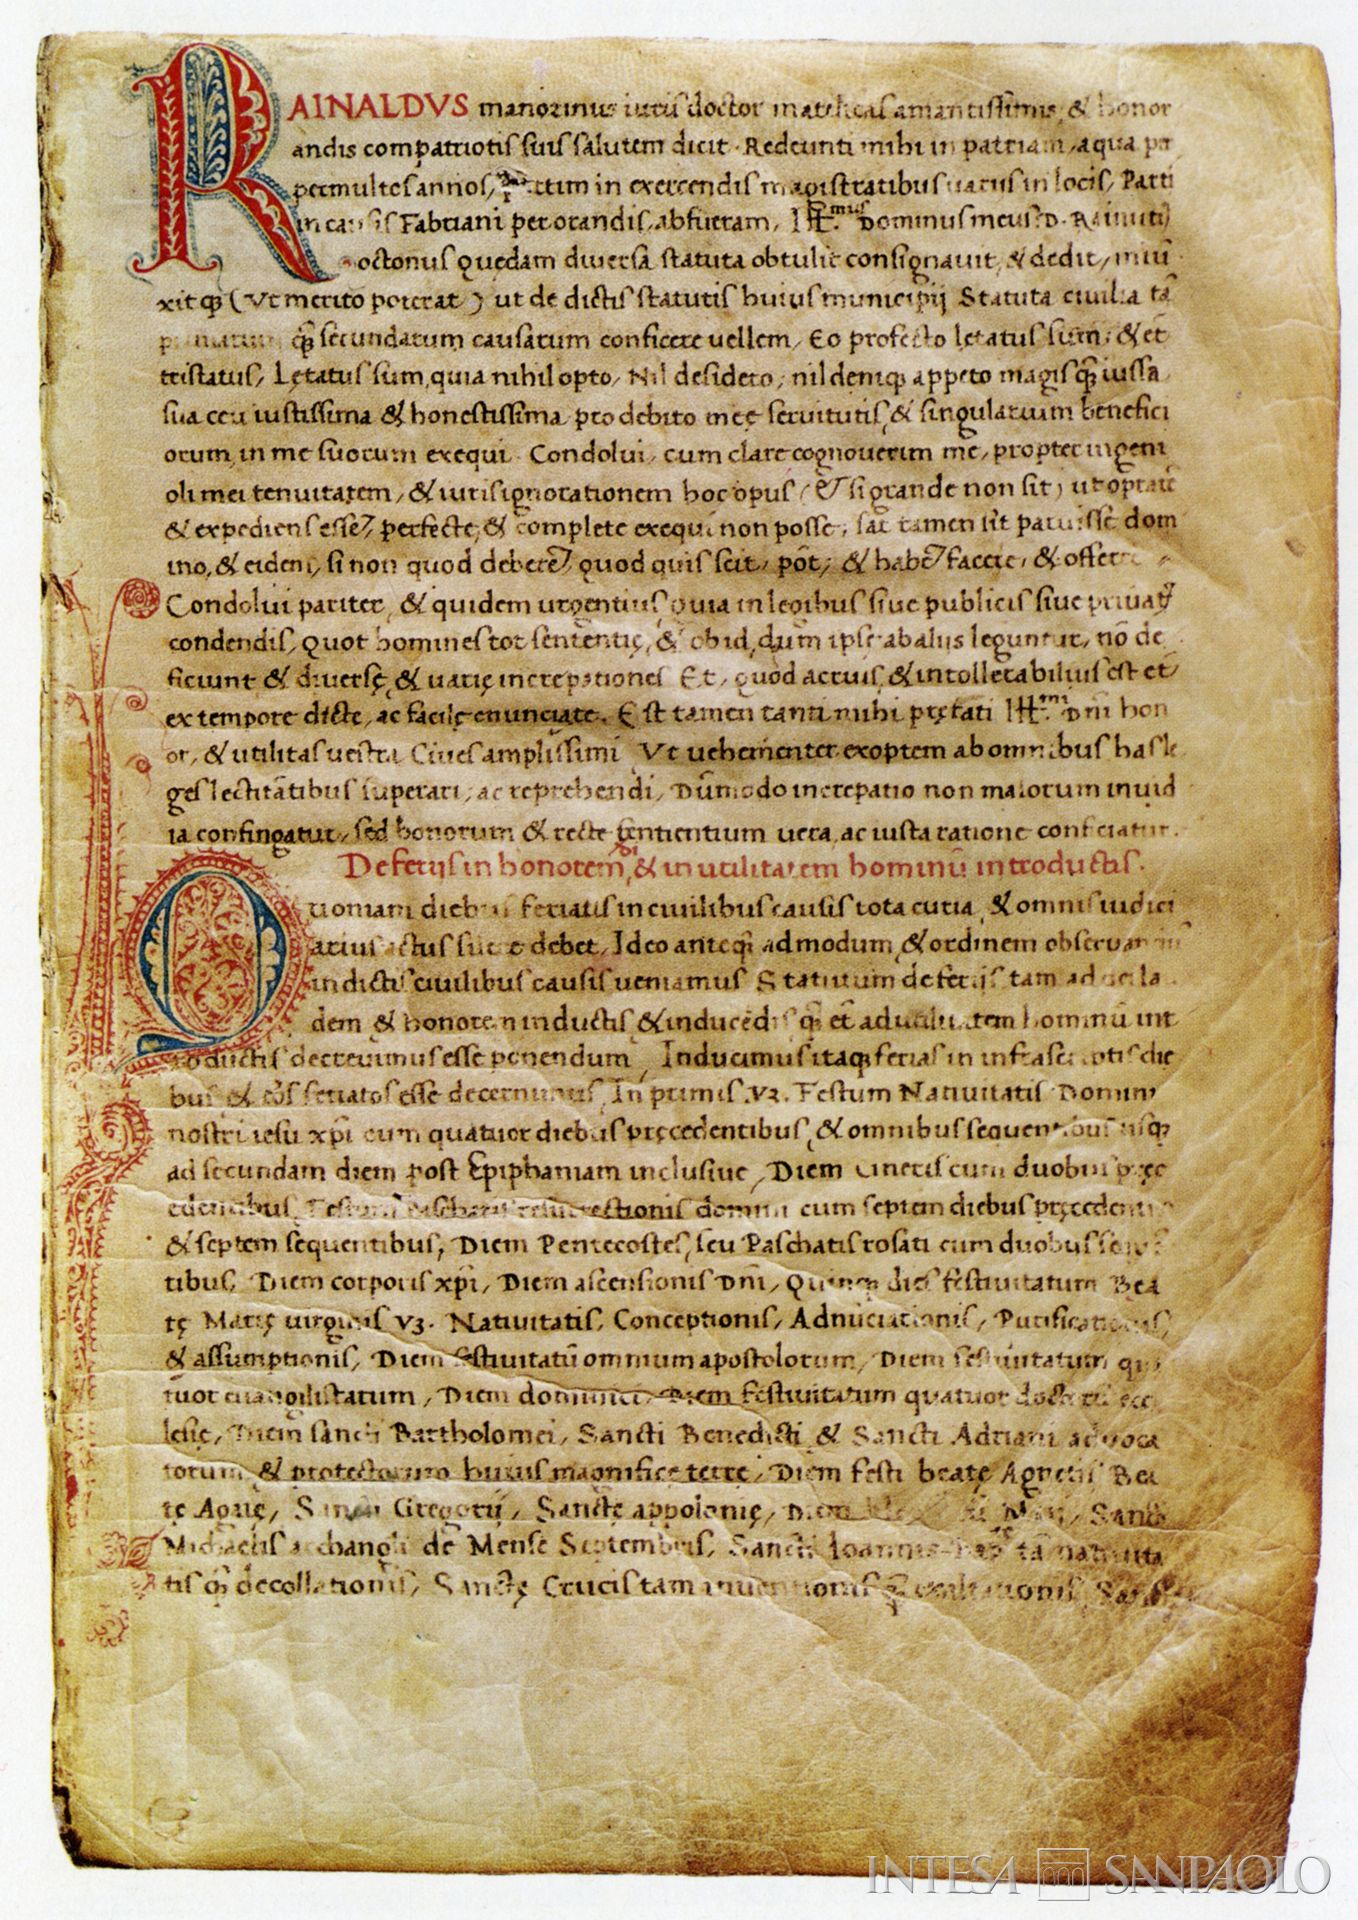 RAINALDVS manorinus iuriũ doctor matelicas amantissimis, & honor
andis compatriotis suis salutem dicit. Redeunti mihi in patriam, a qua
permultos annos, in exercendis magistratibus uariis in locis, Parti
in causis Fabriani perorandis, abfueram, Dominus meus D. Rainuti
octonus quędam diuersa statuta obtulit consignauit, & dedit, iniũ
xitq̃ (Ut merito poterat) ut de dictis statutis huius municipij Statuta ciuilia tã
q̃ secundarum causarum conficere uellem, Eo profecto lętatus sum, & et
tristatus, Lętatus sum, quia nihil opto, Nil desidero, nil deniq̃ appeto magis q̃ iussa
sua ceu iustissima & honestissima pro debito meę seruitutis, & singularium benefici
orum, in me suorum exequi. Condolui, cum clare cognouerim me, propter ingeni
oli mei tenuitatem, & iuris ignorationem hoc opus (& si grande non sit) ut optaũ
& expediens esse, perfecte, & complete exequi non posse, sat tamen sit patuisse dom
ino, & eidem, si non quod debere, quod quis scit, põt, & habe facere, & offerre
Condolui pariter, & quidem urgentius, quia in legibus siue publicis siue priuat
condendis, quot homines tot sententię, & ob id, dum ipse ab aliis leguntur, nõ de
ficiunt & diuersę, & uarię increpationes Et, quod acrius, & intollerabilius est et
ex tempore dicte, ac facile enunciate. Est tamen tanti mihi pręfati Dñi hon
or, & utilitas uestra Ciues amplissimi Ut uehementer exoptem ab omnibus has le
ges lectitãtibus superari, ac reprehendi, Dũmodo increpatio non maiorum inuid
ia confingatur, sed bonorum & recte sentientium uera, ac iusta ratione conficiatur.
De ferijs in honorem di, & in utilitatem hominũ introductis.
Quoniam diebus feriatis in ciuilibus causis tota curia, & omnis iudici
arius actus silere debet, Ideo anteq̃ ad modum & ordinem obseruan
in dictis ciuilibus causis ueniamus Statutum de ferijs tam ad
dem & honorem inductis & inducẽdis q̃ et ad utilitatem hominũ int
roductis decreuimus esse ponendum, Inducimus itaq̃ ferias in infrascriptis die
bus & eos feriatos esse decernimus, In primis .V3. Festum Natiuitatis Domini
nostri iesu xpi cum quatuor diebus pręcedentibus, & omnibus sequentibus usq̃
ad secundam diem post Epiphaniam inclusiue, Diem cineris cum duobus pręc
edentibus, Festum Paschatis resurrectionis domini cum septem diebus pręcedenti
& septem sequentibus, Diem Pentecostes, seu Paschatis rosati cum duobus sequẽ
tibus, Diem corporis xpi, Diem ascensionis Dñi, Quinq̃ dies festiuitatum Bea
tę Marię uirginis V3. Natiuitatis, Conceptionis, Adnũciationis, Purificationis,
& assumptionis, Diem festiuitatũ omnium apostolorum, Diem festiuitatum qua
tuor euangilistarum, Diem dominici, Diem festiuitatum quatuor doctorũ ecc
lesię, Diem sancti Bartholomei, Sancti Benedicti & Sancti Adriani aduoca
torum, & protectorum huius magnificę terrę, Diem festi beatę Agnetis Bea
tę Aguę, Sancti Gregorij, Sanctę appolonię, Sancti
Michaelis archangeli de Mense Septembris, Sancti Ioannis tã natiuita
tis q̃ decollationis, Sanctę Crucis tam inuentionis q̃ exaltationis,
INTESA SANPAOLO